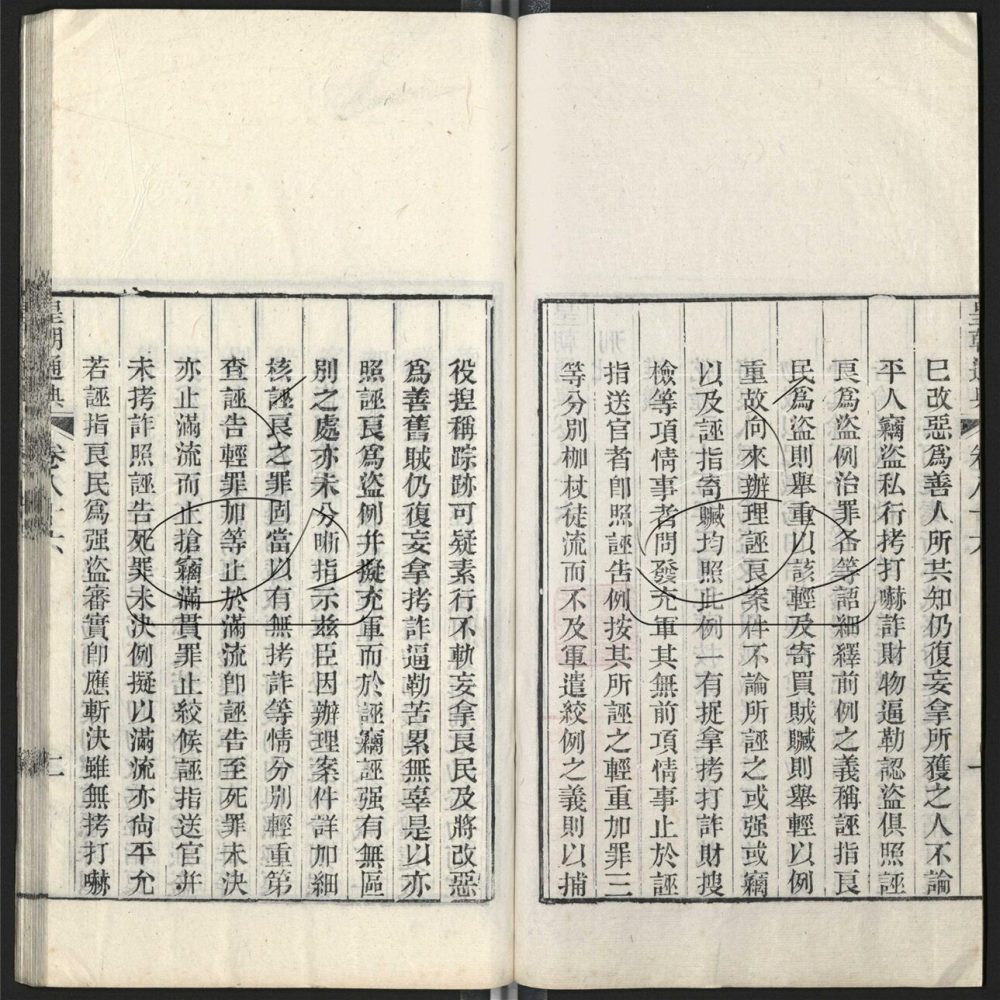 已改惡爲善人所共知仍復妄拿所獲之人不論
平人竊盜私行拷打嚇詐財物逼勒認盜俱照誣
良爲盜例治罪各等語細繹前例之義稱誣指良
民爲盜則舉重以該輕及寄買賊贓則舉輕以例
重故向來辦理誣良案件不論所誣之或强或竊
以及誣指寄贓均照此例一有捉拿拷打詐財搜
檢等項情事者問發充軍其無前項情事止於誣
指送官者卽照誣告例按其所誣之輕重加罪三
等分別枷杖徒流而不及軍遣絞例之義則以捕
役揑稱踪跡可疑素行不軌妄拿良民及將改惡
爲善舊賊仍復妄拿拷詐逼勒苦累無辜是以亦
照誣良爲盜例并擬充軍而於誣竊誣强有無區
別之處亦未分晰指示茲臣因辦理案件詳加細
核誣良之罪固當以有無拷詐等情分別輕重第
查誣告輕罪加等止於滿流卽誣告至死罪未決
亦止滿流而止搶竊滿貫罪止絞候誣指送官并
未拷詐照誣告死罪未決例擬以滿流亦尙平允
若誣指良民爲强盜審實卽應斬決雖無拷打嚇
皇朝通典
卷八十六
二